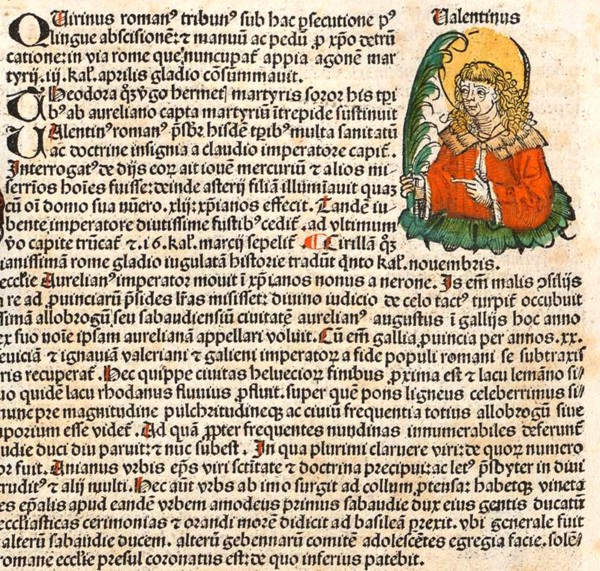 Quirinus romanꝰ tribunꝰ sub hac ꝑsecutione pꝰ
lingue abscisionē: ⁊ manuū ac pedū ꝓ xp̄o detrū
catione: in via rome que nuncupat̄ appia agonē mar
tyrij .iij. kal̄. aprilis gladio cōsummauit.
Theodora qꝫ v̓go hermet martyris soror his tp̄i
bꝰ ab aureliano capta martyriū ītrepide sustinuit
Ualentinꝰ romanꝰ p̄sbr̄ hisdē tp̄ibꝰ multa sanitatū
ac doctrine insignia a claudio imperatore capit̄.
Interrogatꝰ de dijs coꝝ ait iouē mercuriū ⁊ alios mi
serrīos hoīes fuisse: deinde asterij filiā illuminauit quaꝫ
cū oī domo sua nūero .xlij: xp̄ianos effecit. Tandē iu⸗
bente imperatore diutissime fustibꝰ cedit̄ .ad vltimum
v̓o capite trūcat̄ ⁊ .16. kal̄. marcij sepelit̄. ¶ Cirillā qꝫ
Ualentinus
ianissimā rome gladio iugulatā historie tradūt qn̄to kal̄. novembris.
eccl̄ie Aurelianꝰ imperator mouit ī xp̄ianos nonus a nerone. Is em̄ malis ↄsilijs
n re ad ꝓuinciarū p̄sides lr̄as misisset: diuino iudicio de celo tactꝰ turpit̄ occubuit
ssimā allobrogū, seu sabaudiensiū ciuitatē aurelianꝰ augustus ī gallijs hoc anno
ex suo noīe ipsam aurelianā appellari voluit. Cū em̄ gallia ꝓuincia per annos .xx.
euiciā ⁊ ignauiā valeriani ⁊ galieni imperatoꝝ a fide populi romani se subtraxis
ris recuperat̄. Hec quippe ciuitas helueciorꝝ finibus ꝓxima est ⁊ lacu lemāno si⸗
uo quidē lacu rhodanus fluuius ꝓfluit. super quē pons ligneus celeberrimus si⸗
nunc pre magnitudine pulchritudineqꝫ ac ciuiū frequentia totius allobrogū siue
uporium esse videt̄. Ad quā ꝓpter frequentes nundinas innumerabiles deferunt̄
udie duci diu paruit: ⁊ nūc subest. In qua plurimi claruere viri: de quoꝝ numero
or fuit. Anianus vrbis ep̄s viri sctitate ⁊ doctrina precipui: ac letꝰ p̄sbyter in diui
rudit̄ꝰ ⁊ alij multi. Hec aūt vrbs ab imo surgit ad collum ꝓtensa: habetqꝫ vineta
es ep̄alis apud eandē vrbem amodeus primus sabaudie dux eius gentis ducatū
ecclesiasticas cerimonias ⁊ orandi morē didicit ad basileā ꝑrexit. vbi generale fuit
alterū sabaudie ducem. alterū gebennarū comitē adolescētes egregia facie. solē⸗
romane eccl̄ie presul coronatus est: de quo inferius patebit.